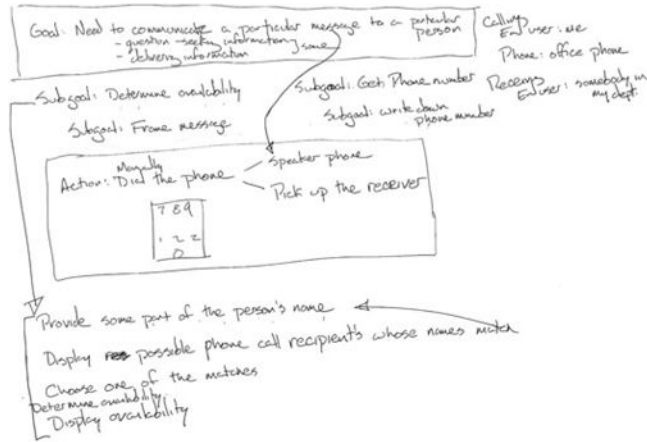 Goal: Need to communicate a particular message to a particular person
- question - seeking information
- delivering information
some
Calling
End user: me
Phone: office phone
Receiving
End user: somebody in my dept.
Subgoal: Determine availability
Subgoal: Get Phone number
Subgoal: Frame message
Subgoal: write down phone number
Manually
Action: Dial the phone
Speaker phone
Pick up the receiver
7 8 9
0
Provide some part of the person's name
Display possible phone call recipient's whose names match
Choose one of the matches
Determine availability
Display availability